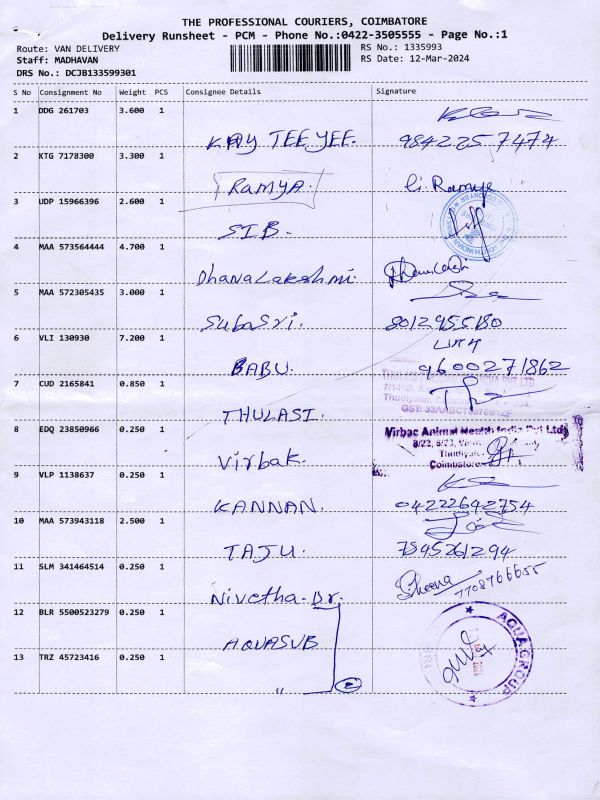 THE PROFESSIONAL COURIERS, COIMBATORE
Delivery Runsheet - PCM - Phone No.:0422-3505555 - Page No.:1
Route: VAN DELIVERY
RS No.: 1335993
Staff: MADHAVAN
RS Date: 12-Mar-2024
DRS No.: DCJB133599301
S No Consignment No Weight PCS Consignee Details Signature
1 DDG 261703 3.600 1
KAY TEE YEE. 9842257474
2 KTG 7178300 3.300 1
RAMYA. G. Ramya
3 UDP 15966396 2.600 1
SIB.
4 MAA 573564444 4.700 1
Dhanalakshmi.
5 MAA 572305435 3.000 1
Subasri. 8012955180
6 VLI 130930 7.200 1
பாபு
BABU. 9600271862
7 CUD 2165841 0.850 1
THULASI.
8 EDQ 23850966 0.250 1
Virbac Animal Health India Pvt Ltd
8/22, 8/23,
Coimbatore
Virbak.
9 VLP 1138637 0.250 1
KANNAN. 04222692754
10 MAA 573943118 2.500 1
TAJU. 7395261294
11 SLM 341464514 0.250 1
Sheena 7708766655
Nivetha. Dr.
12 BLR 5500523279 0.250 1
AQUASUB
AQUAGROUP
13 TRZ 45723416 0.250 1
" 2